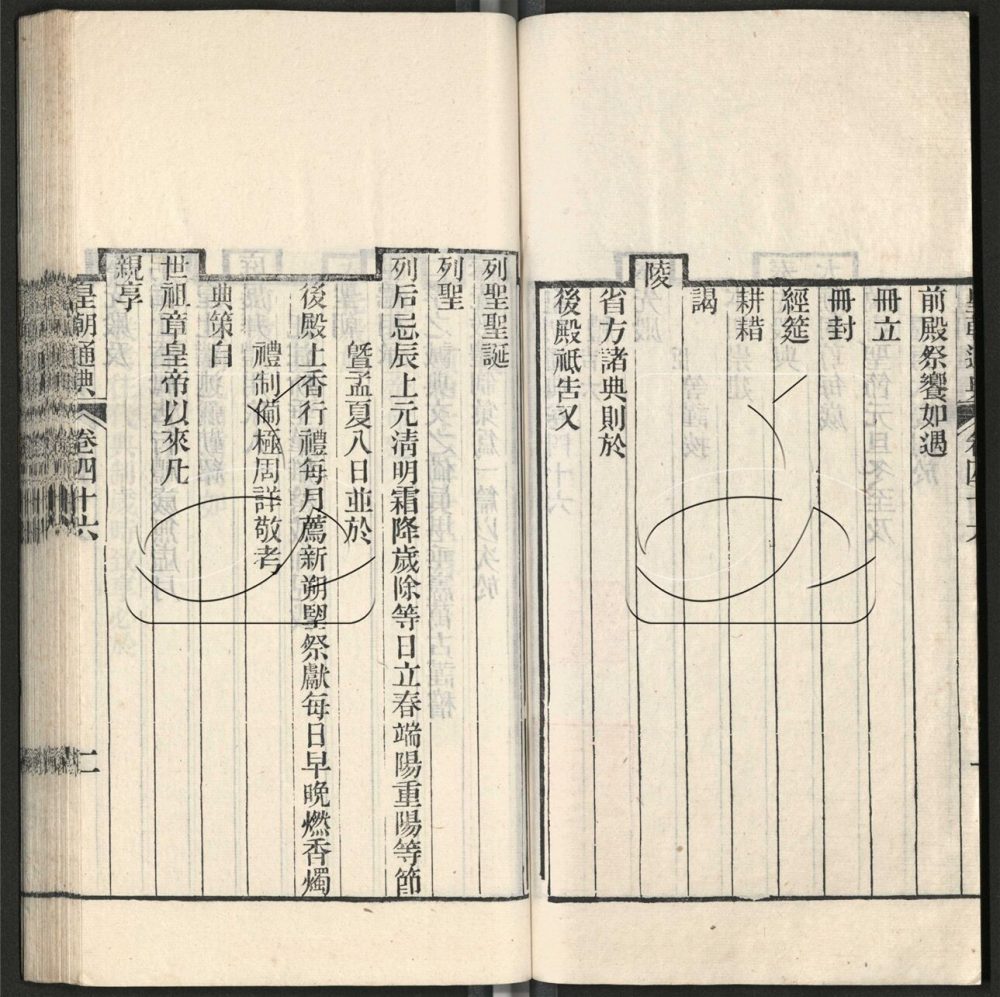 前殿祭饗如遇
冊立
冊封
經筵
耕耤
謁
陵
省方諸典則於
後殿祗告又
列聖聖誕
列聖
列后忌辰上元淸明霜降歲除等日立春端陽重陽等節
曁孟夏八日並於
後殿上香行禮每月薦新朔朢祭獻每日早晚燃香燭
禮制備極周詳敬考
典策自
世祖章皇帝以來凡
親享
皇朝通典 卷四十六 二